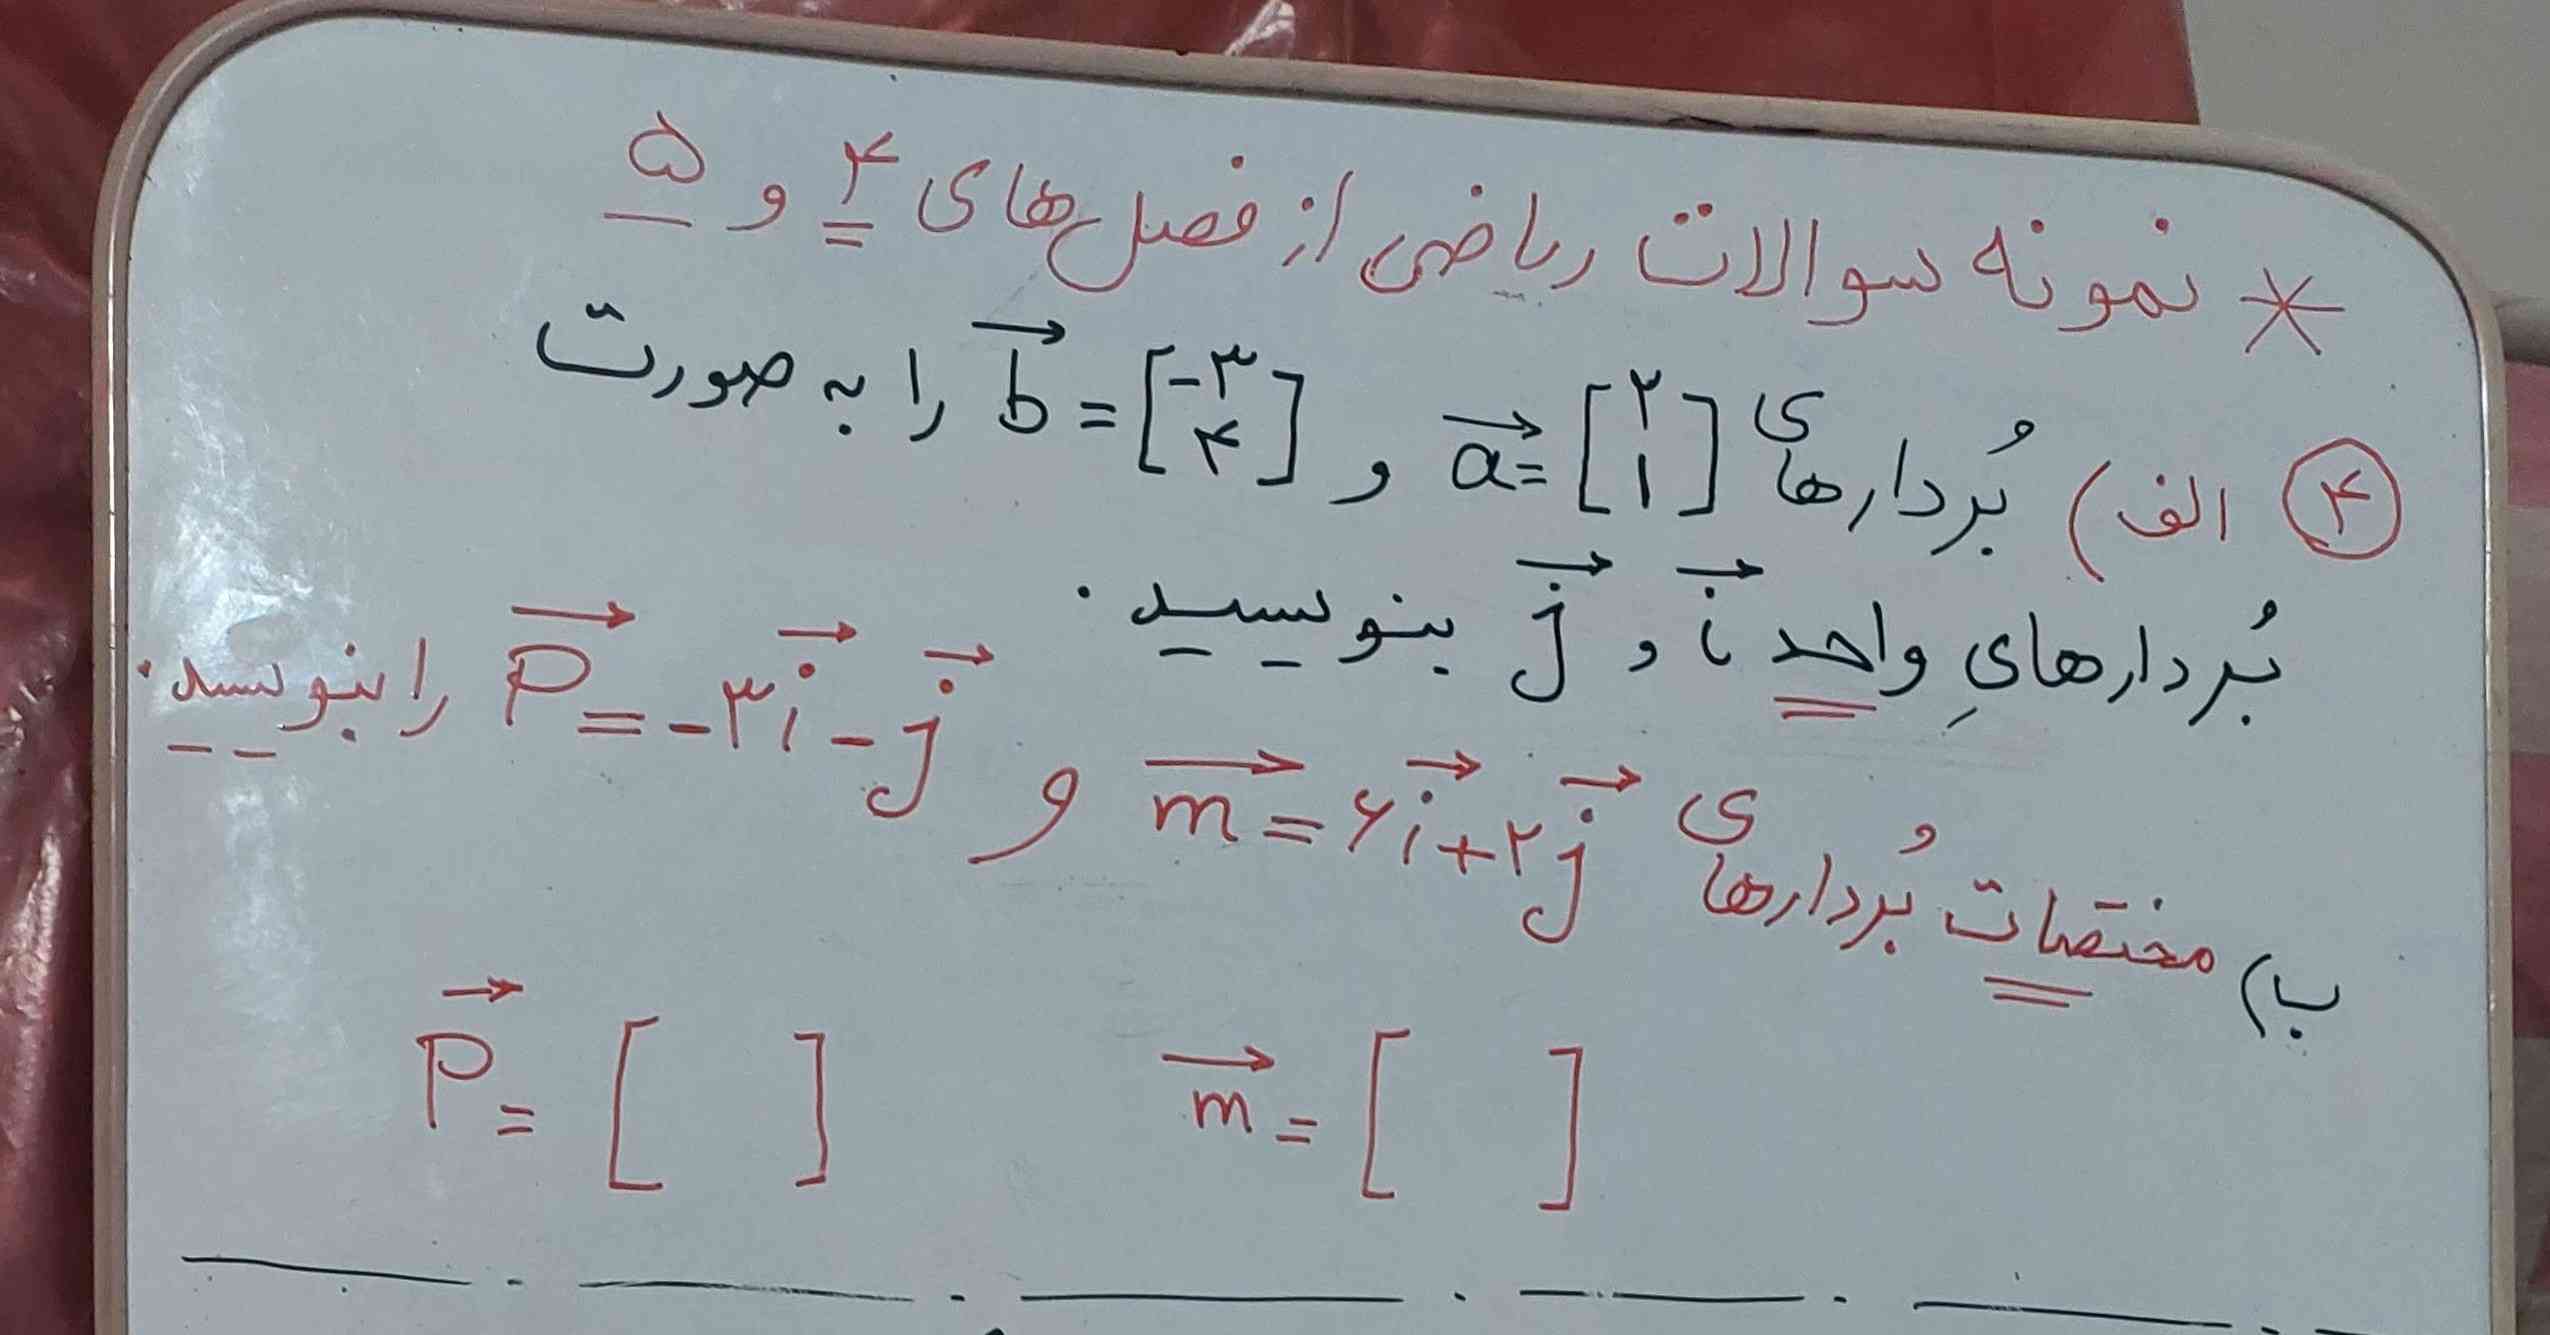 * نمونه سوالات ریاضی از فصل‌های ۴ و ۵
۴ الف) بُردارهای a⃗ = [۲ ۱] و b⃗ = [-۳ ۴] را به صورت
بُردارهایِ واحد i⃗ و j⃗ بنویسید.
ب) مختصات بُردارهای m⃗ = ۶i⃗ + ۲j⃗ و P⃗ = -۳i⃗ - j⃗ را بنویسید.
m⃗ = [ ] P⃗ = [ ]